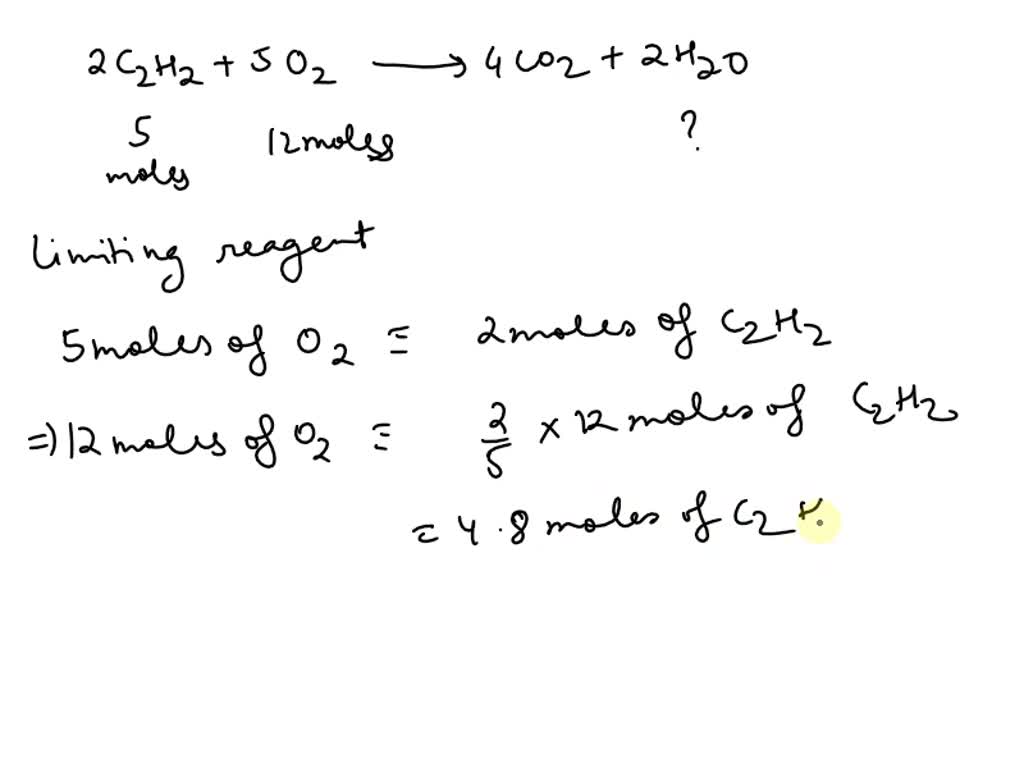 2C2H2 + 5O2 → 4CO2 + 2H2O
5 moles 12 moles ?
limiting reagent
5 moles of O2 ≡ 2 moles of C2H2
⇒ 12 moles of O2 ≡ 2/5 × 12 moles of C2H2
= 4.8 moles of C2H